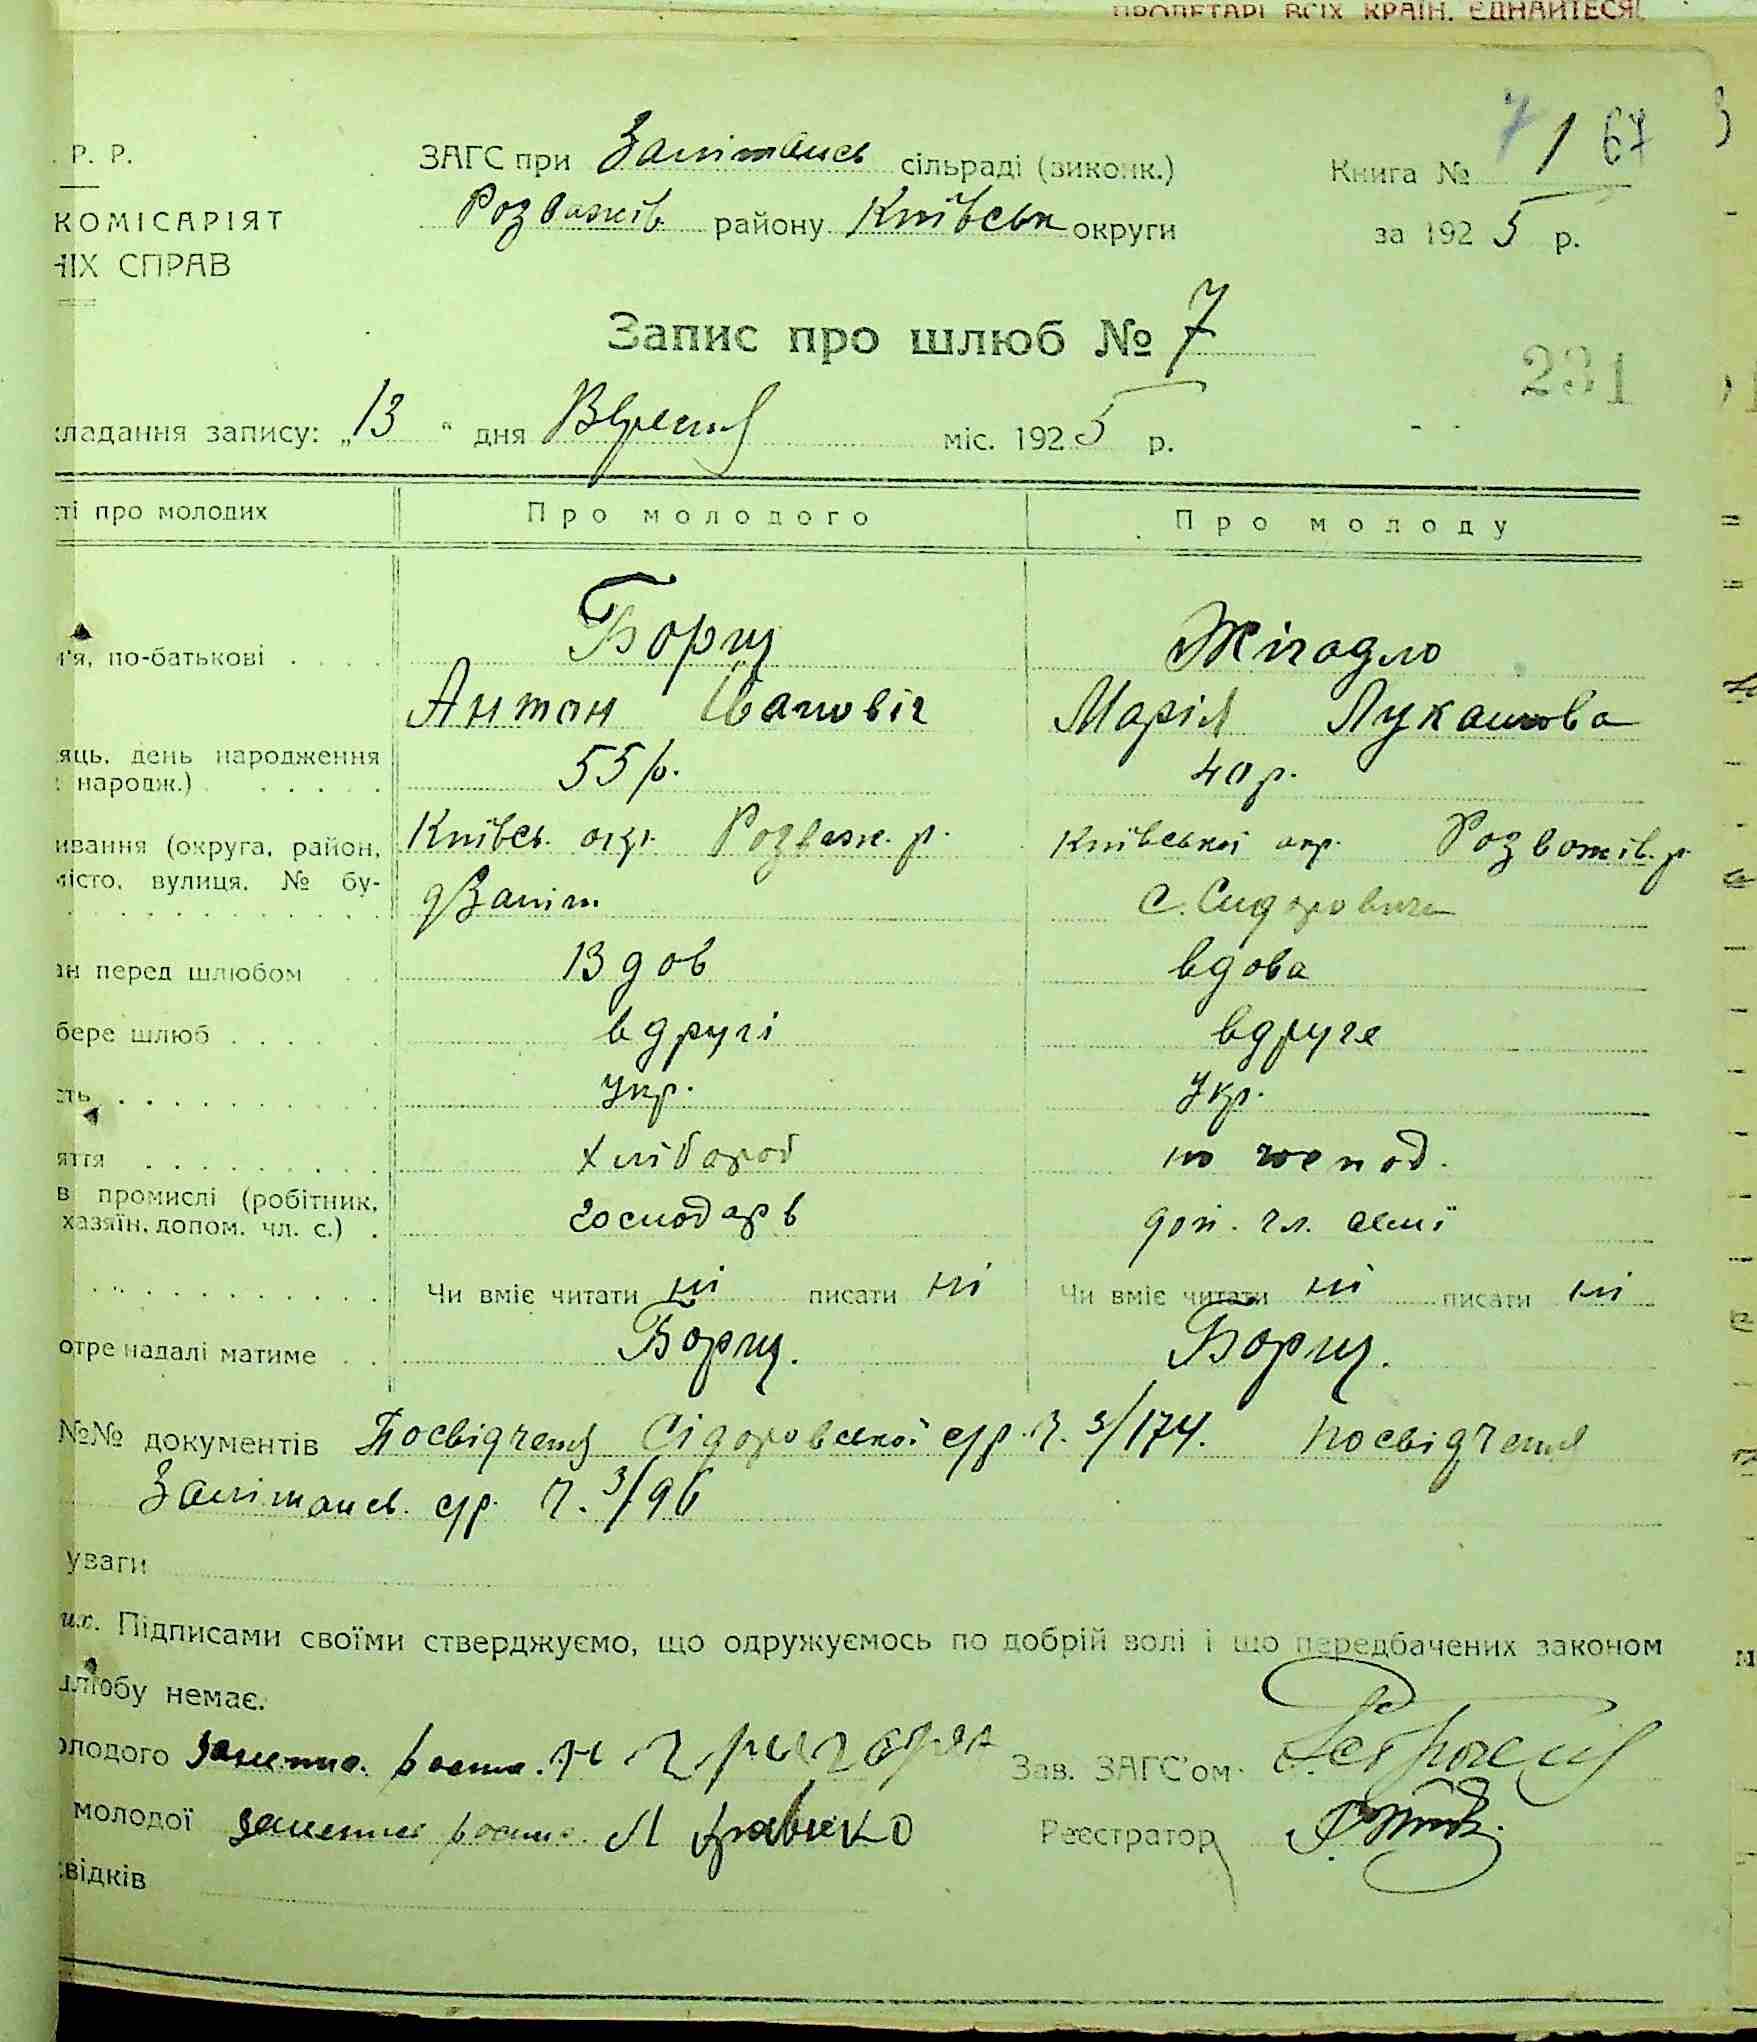 ПРОЛЕТАРІ ВСІХ КРАЇН, ЄДНАЙТЕСЯ!
. Р. Р.
ЗАГС при Залішанськ сільраді (виконк.)
Книга № 7 1 67
КОМІСАРІЯТ
Розважів району Київськ округи
за 1925 р.
НІХ СПРАВ
Запис про шлюб № 7
231
кладання запису: „13" дня Вересня міс. 1925 р.
ті про молодих
Про молодого
Про молоду
Борщ
Жігадло
м'я, по-батькові . . . .
Антон Іванович
Марія Лукашова
яць, день народження
народж.) . . . . . .
55 р.
40 р.
ивання (округа, район,
Київсь. окр. Розваж. р.
Київської окр. Розважів. р.
місто, вулиця, № бу-
с. Сидоровичи
ан перед шлюбом . .
Вдов
вдова
бере шлюб . . . . .
вдругі
вдруге
сть . . . . . . . . . .
Укр.
Укр.
яття . . . . . . . . .
хлібороб
в промислі (робітник,
хазяїн, допом. чл. с.) .
господарь
доп. чл. семї
Чи вміє читати ні писати ні
Чи вміє читати ні писати ні
отре надалі матиме . .
Борщ.
Борщ.
№№ документів Посвідченя Сідоровської с/р. Ч. 3/174. Посвідченя
Залішансь. с/р. Ч. 3/96
уваги
их. Підписами своїми стверджуємо, що одружуємось по добрій волі і що передбачених законом
шлюбу немає.
олодого
Зав. ЗАГС'ом
молодої
Реєстратор
свідків